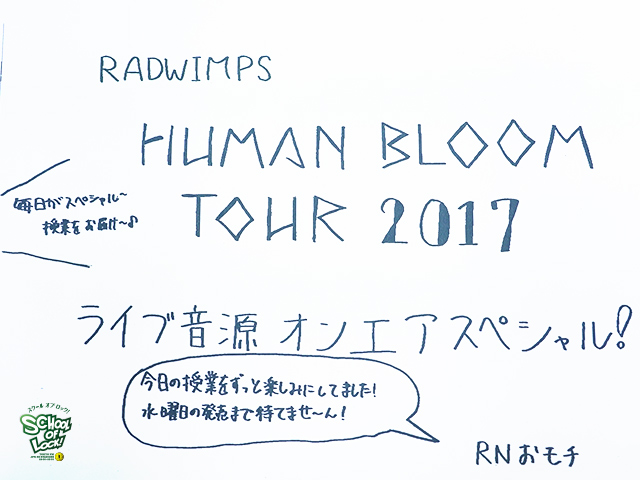 RADWIMPS
HUMAN BLOOM
TOUR 2017
毎日がスペシャル〜
授業をお届け〜♪
ライブ音源 オンエアスペシャル!
今日の授業をずっと楽しみにしてました!
水曜日の発売まで待てませ〜ん!
RNおモチ
スクール オブ ロック!
SCHOOL
OF
LOCK!